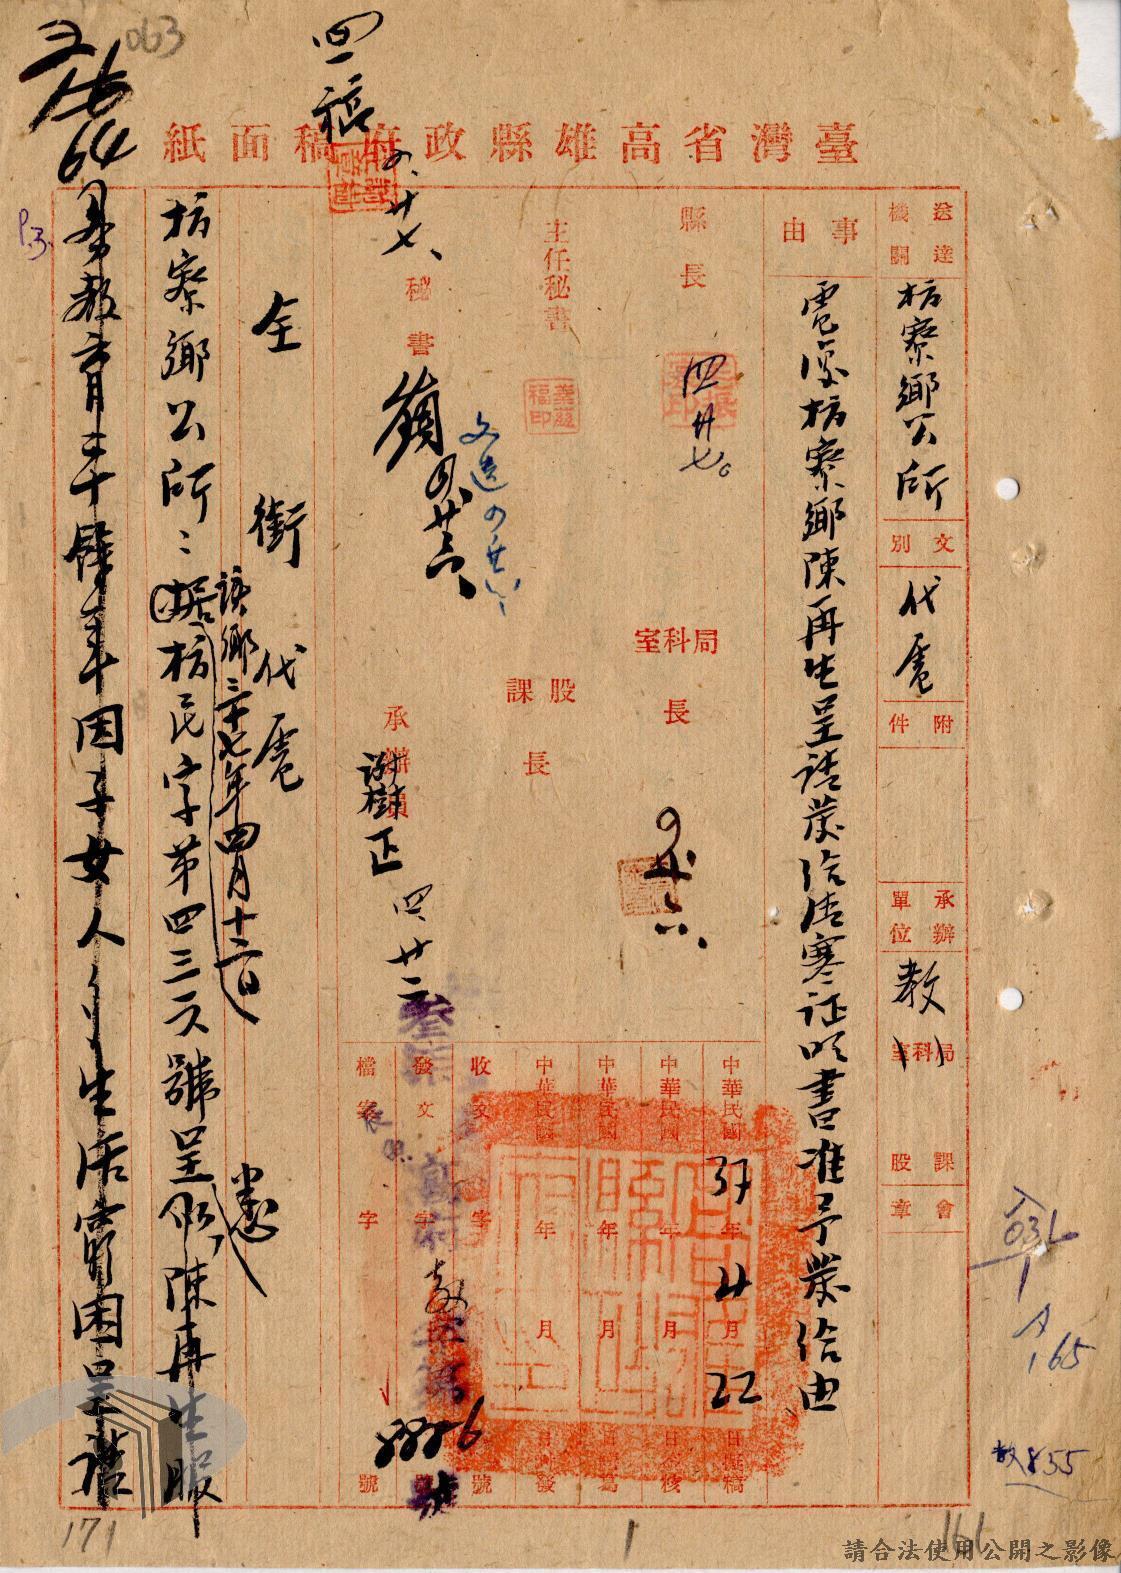 063
臺灣省高雄縣政府稿面紙
送達機關
枋寮鄉公所
文別
代電
附件
承辦單位
教
局科室
課股
會章
事由
電復枋寮鄉陳再生呈請發給清寒証明書准予發給由
縣長
四廿七
主任秘書
秘書
四廿六
文造四廿六
局科室長
股課長
承辦員
謝樹正
四、廿二
中華民國37年4月22日擬稿
中華民國 年 月 日
中華民國 年 月 日
中華民國 年 月 日
收文 字 號
發文 字 號
檔案 字 號
回稿
四、廿七
全銜代電
該鄉三十七年四月十六日
枋寮鄉公所：据枋民字第四三 號呈 陳再生服
教育三十 年因子女人多生活窮困呈請
64
P.3.
032
165
教855
171
1
161
請合法使用公開之影像